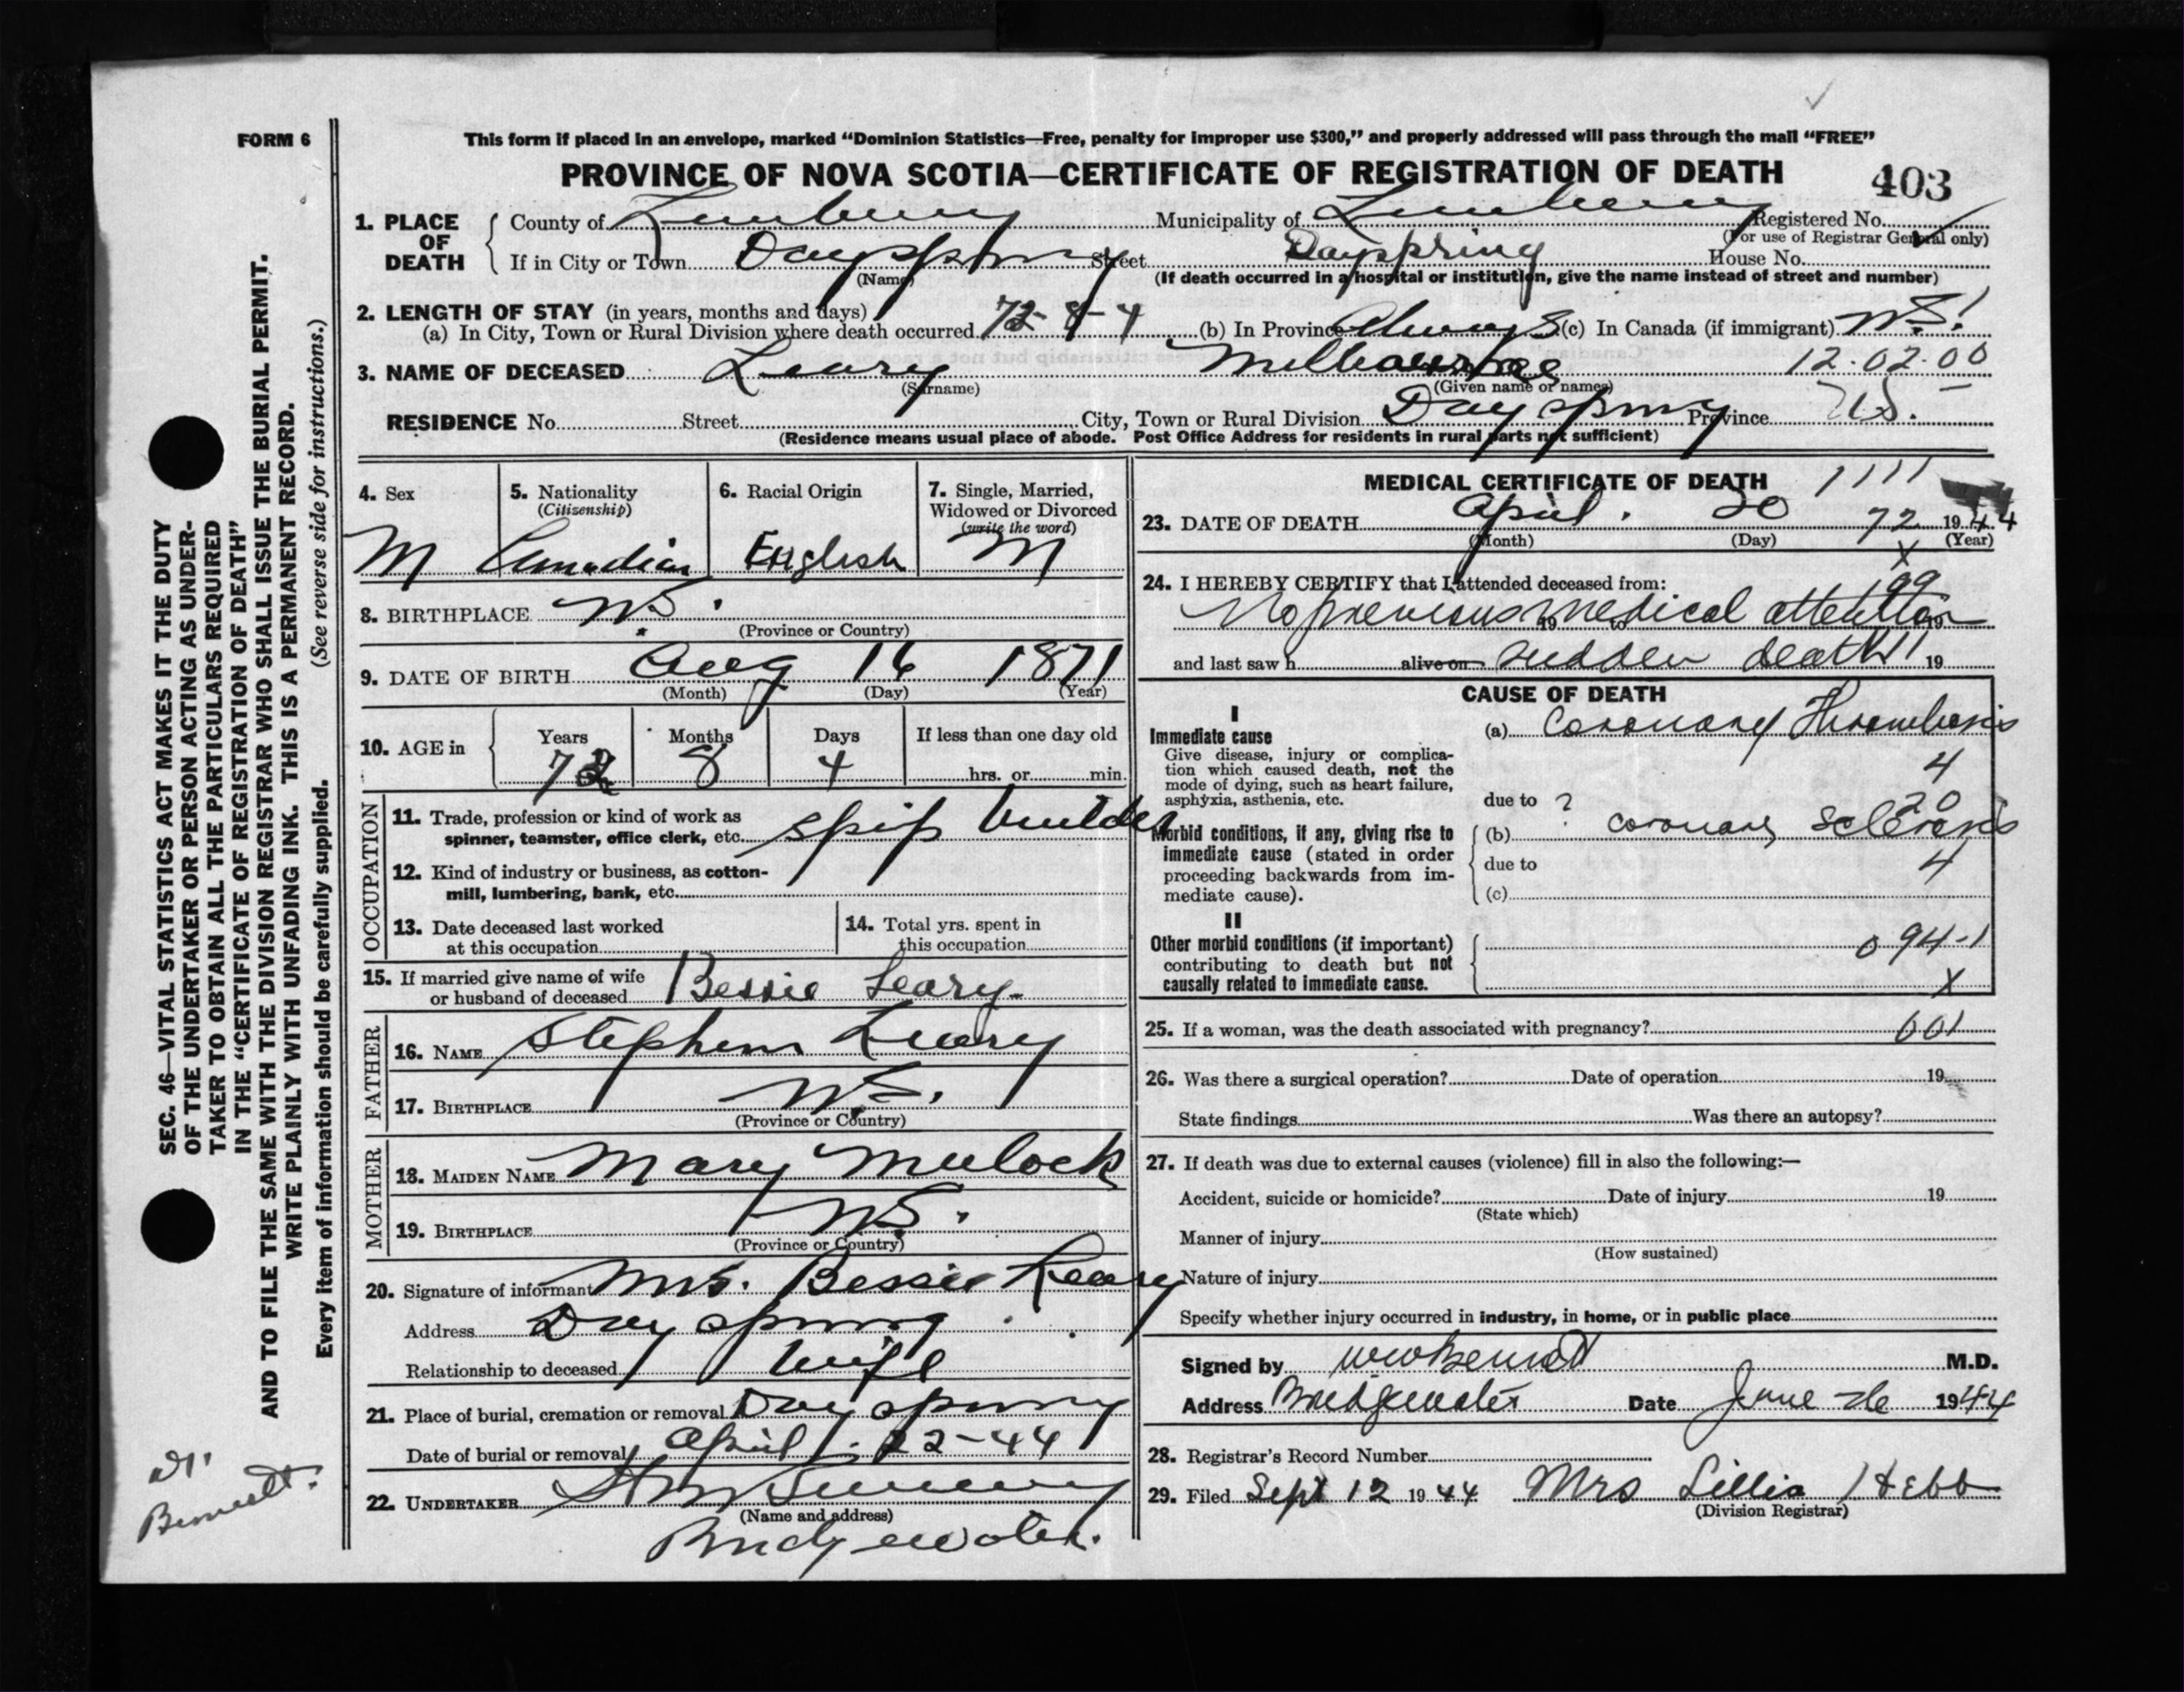 FORM 6
This form if placed in an envelope, marked “Dominion Statistics—Free, penalty for improper use $300,” and properly addressed will pass through the mail “FREE”
PROVINCE OF NOVA SCOTIA—CERTIFICATE OF REGISTRATION OF DEATH
403
1. PLACE OF DEATH
County of Lunenburg Municipality of Lunenburg Registered No.
(For use of Registrar General only)
If in City or Town Dayspring Street Dayspring House No.
(Name) (If death occurred in a hospital or institution, give the name instead of street and number)
2. LENGTH OF STAY (in years, months and days)
(a) In City, Town or Rural Division where death occurred 72-8-4 (b) In Province Always (c) In Canada (if immigrant) N.S.
3. NAME OF DECEASED Leary Melbourne 12.02.00
(Surname) (Given name or names)
RESIDENCE No. Street City, Town or Rural Division Dayspring Province N.S.
(Residence means usual place of abode. Post Office Address for residents in rural parts not sufficient)
4. Sex M
5. Nationality (Citizenship) Canadian
6. Racial Origin English
7. Single, Married, Widowed or Divorced (write the word) M
8. BIRTHPLACE N.S.
(Province or Country)
9. DATE OF BIRTH Aug 16 1871
(Month) (Day) (Year)
10. AGE in Years 72 Months 8 Days 4 If less than one day old hrs. or min.
OCCUPATION
11. Trade, profession or kind of work as spinner, teamster, office clerk, etc. Ship builder
12. Kind of industry or business, as cotton-mill, lumbering, bank, etc.
13. Date deceased last worked at this occupation
14. Total yrs. spent in this occupation
15. If married give name of wife or husband of deceased Bessie Leary
FATHER
16. NAME Stephen Leary
17. BIRTHPLACE N.S.
(Province or Country)
MOTHER
18. MAIDEN NAME Mary Mulock
19. BIRTHPLACE N.S.
(Province or Country)
20. Signature of informant Mrs. Bessie Leary
Address Dayspring
Relationship to deceased Wife
21. Place of burial, cremation or removal Dayspring
Date of burial or removal April 22-44
22. UNDERTAKER
(Name and address)
Bridgewater.
MEDICAL CERTIFICATE OF DEATH 1111
23. DATE OF DEATH April 20 72 1944
(Month) (Day) (Year)
X
24. I HEREBY CERTIFY that I attended deceased from:
199
No previous medical attention
19 to 19
and last saw h alive on sudden death 19
CAUSE OF DEATH
I
Immediate cause
Give disease, injury or complication which caused death, not the mode of dying, such as heart failure, asphyxia, asthenia, etc.
(a) Coronary Thrombosis
4
due to ? 20
Morbid conditions, if any, giving rise to immediate cause (stated in order proceeding backwards from immediate cause).
(b) coronary sclerosis
due to 4
(c)
II
Other morbid conditions (if important) contributing to death but not causally related to immediate cause.
094-1
X
25. If a woman, was the death associated with pregnancy? 001
26. Was there a surgical operation? Date of operation 19
State findings Was there an autopsy?
27. If death was due to external causes (violence) fill in also the following:—
Accident, suicide or homicide? Date of injury 19
(State which)
Manner of injury
(How sustained)
Nature of injury
Specify whether injury occurred in industry, in home, or in public place
Signed by Bennett M.D.
Address Bridgewater Date June 26 1944
28. Registrar's Record Number
29. Filed Sept 12 1944 Mrs Lillia Hebb
(Division Registrar)
SEC. 46—VITAL STATISTICS ACT MAKES IT THE DUTY
OF THE UNDERTAKER OR PERSON ACTING AS UNDER-
TAKER TO OBTAIN ALL THE PARTICULARS REQUIRED
IN THE “CERTIFICATE OF REGISTRATION OF DEATH”
AND TO FILE THE SAME WITH THE DIVISION REGISTRAR WHO SHALL ISSUE THE BURIAL PERMIT.
WRITE PLAINLY WITH UNFADING INK. THIS IS A PERMANENT RECORD.
Every item of information should be carefully supplied. (See reverse side for instructions.)
Dr.
Bennett.